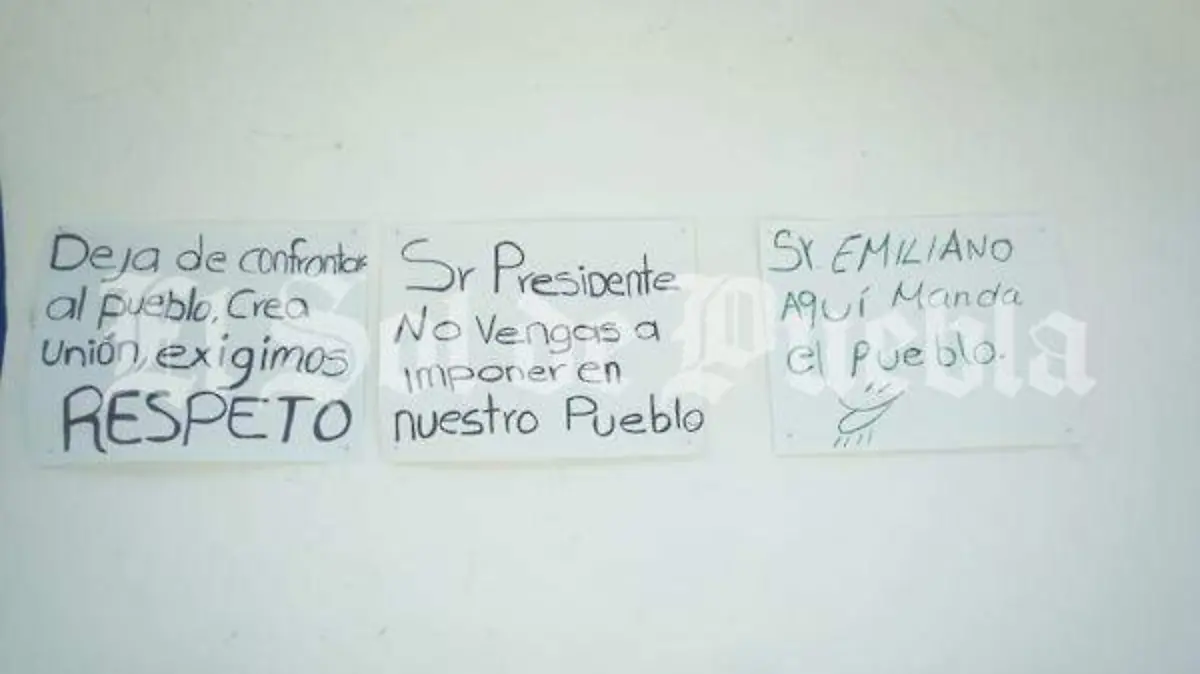 Deja de confrontar
al pueblo, Crea
Unión, exigimos
RESPETO
Sr Presidente
No Vengas a
imponer en
nuestro Pueblo
Sr. EMILIANO
Aquí Manda
el pueblo.
El Sol de Puebla